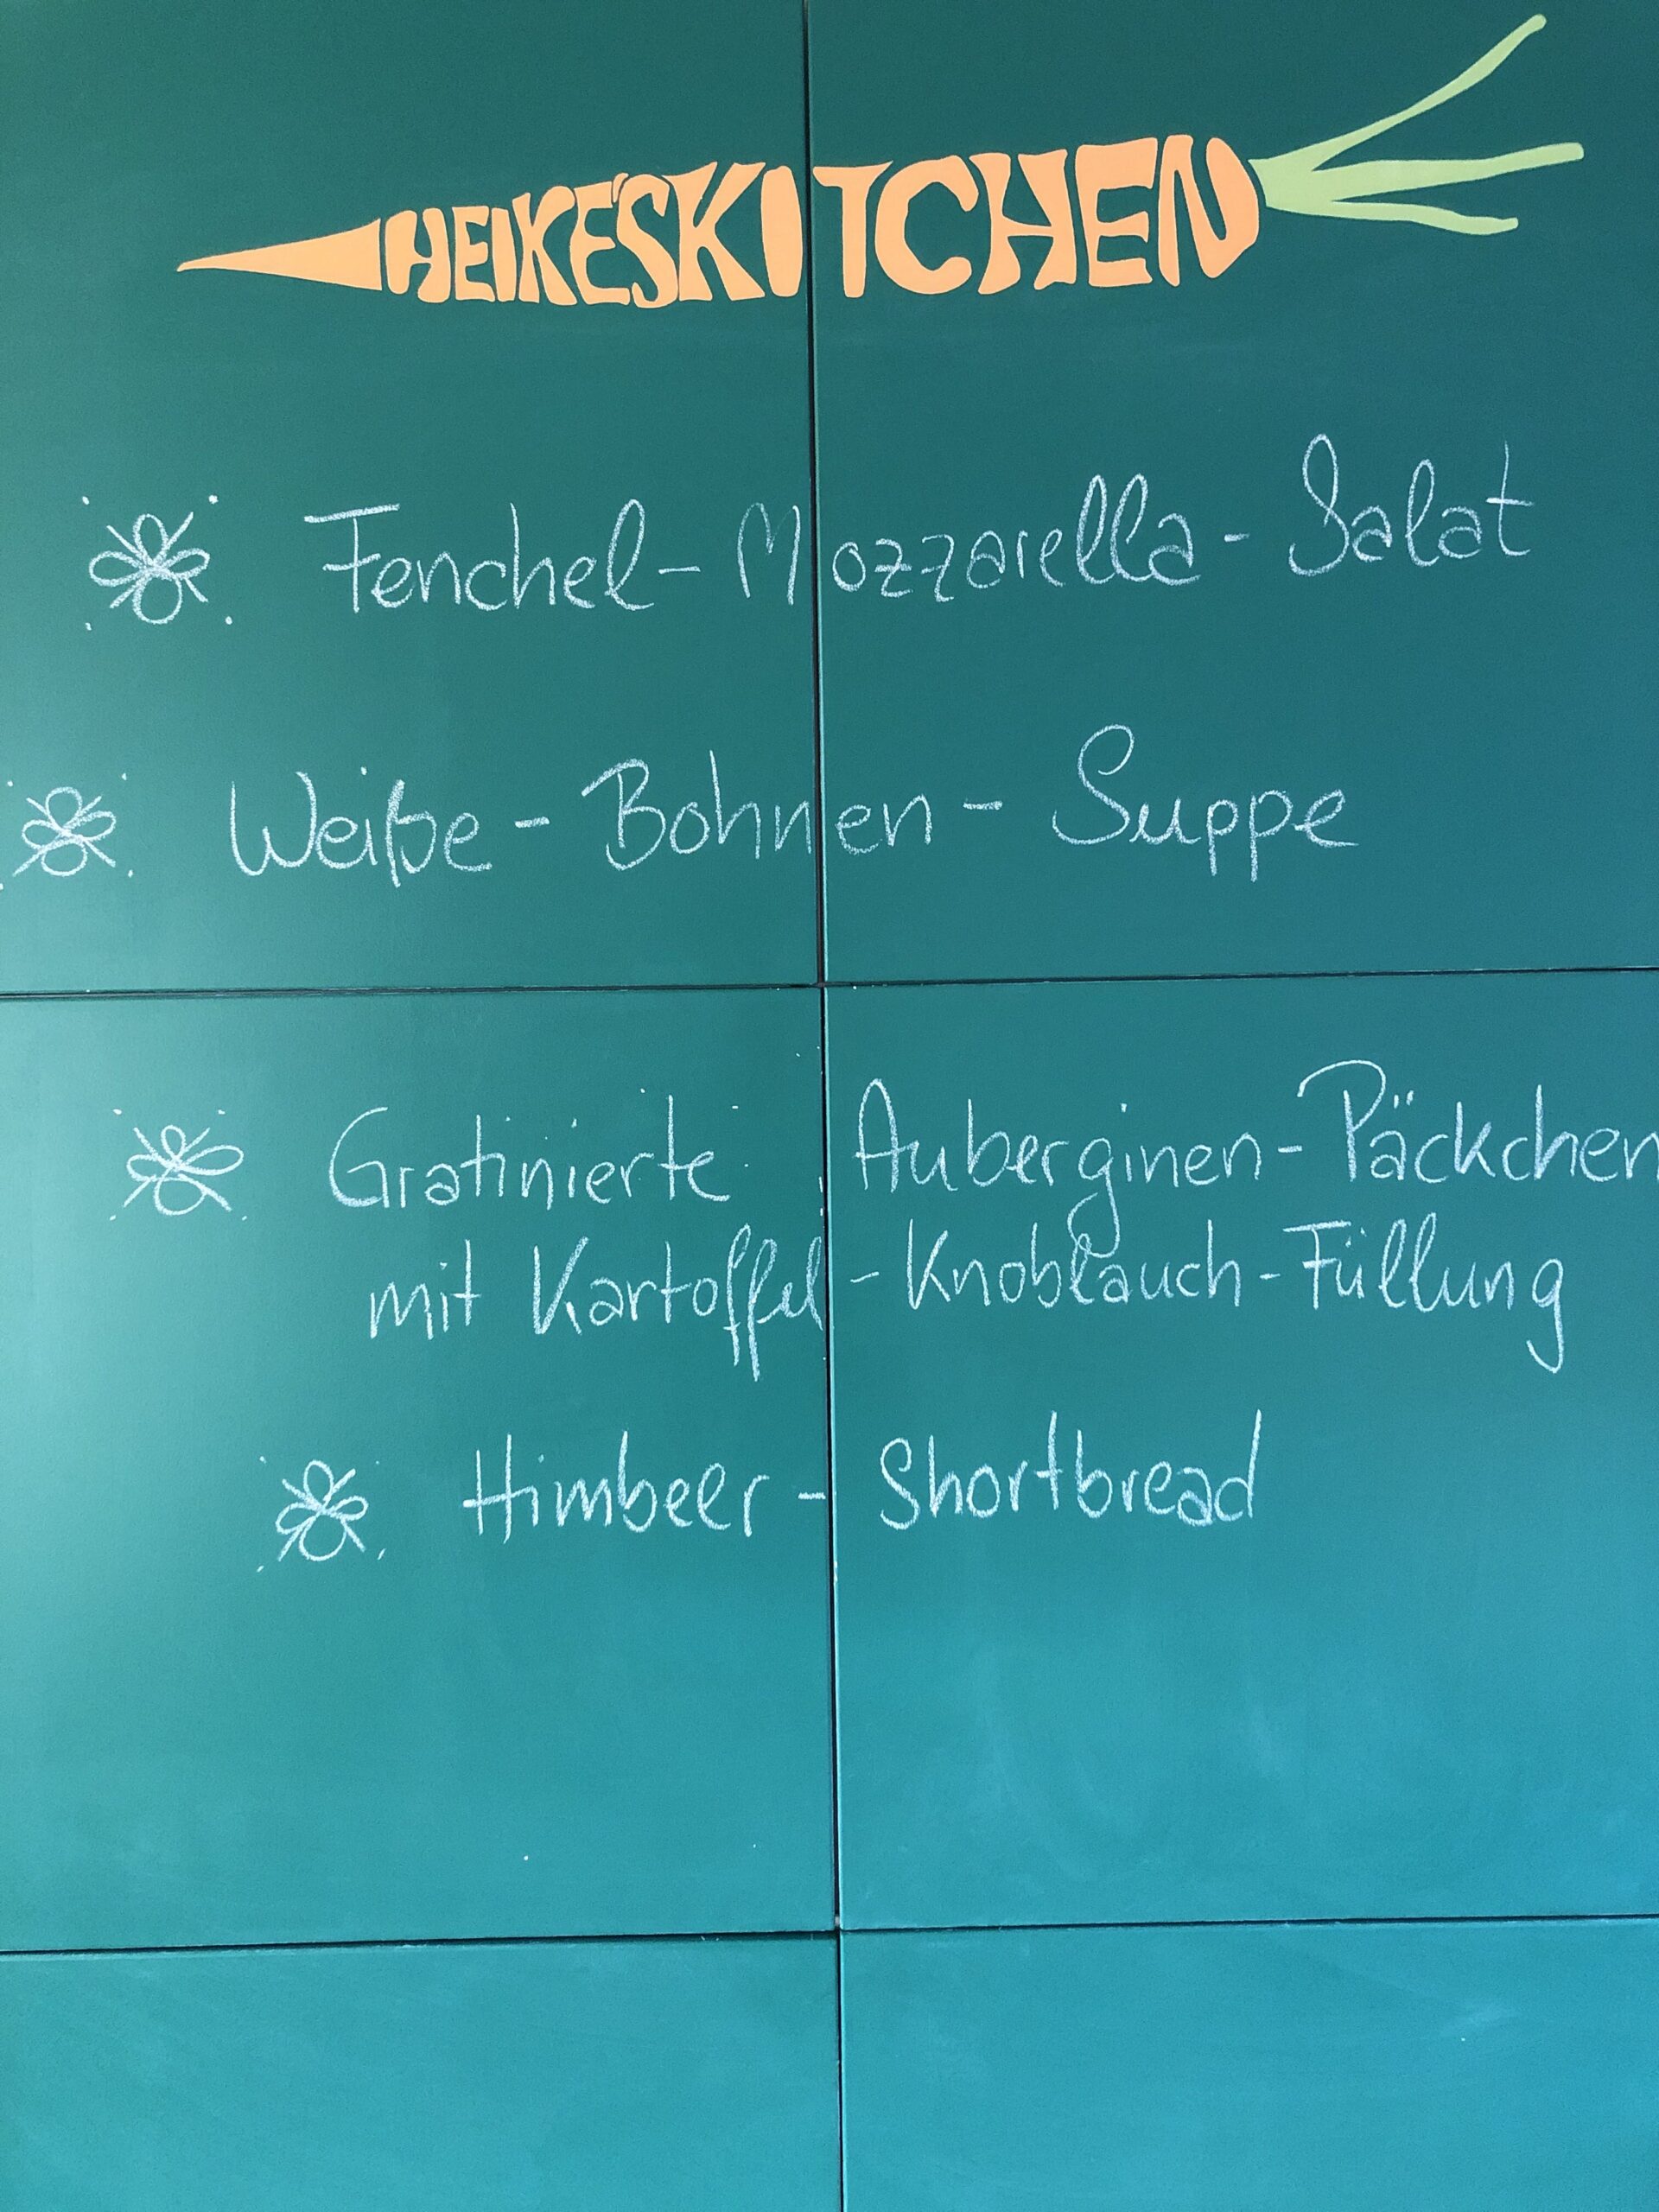 HEIKE'SKITCHEN
Fenchel-Mozzarella-Salat
Weiße-Bohnen-Suppe
Gratinierte Auberginen-Päckchen
mit Kartoffel-Knoblauch-Füllung
Himbeer-Shortbread